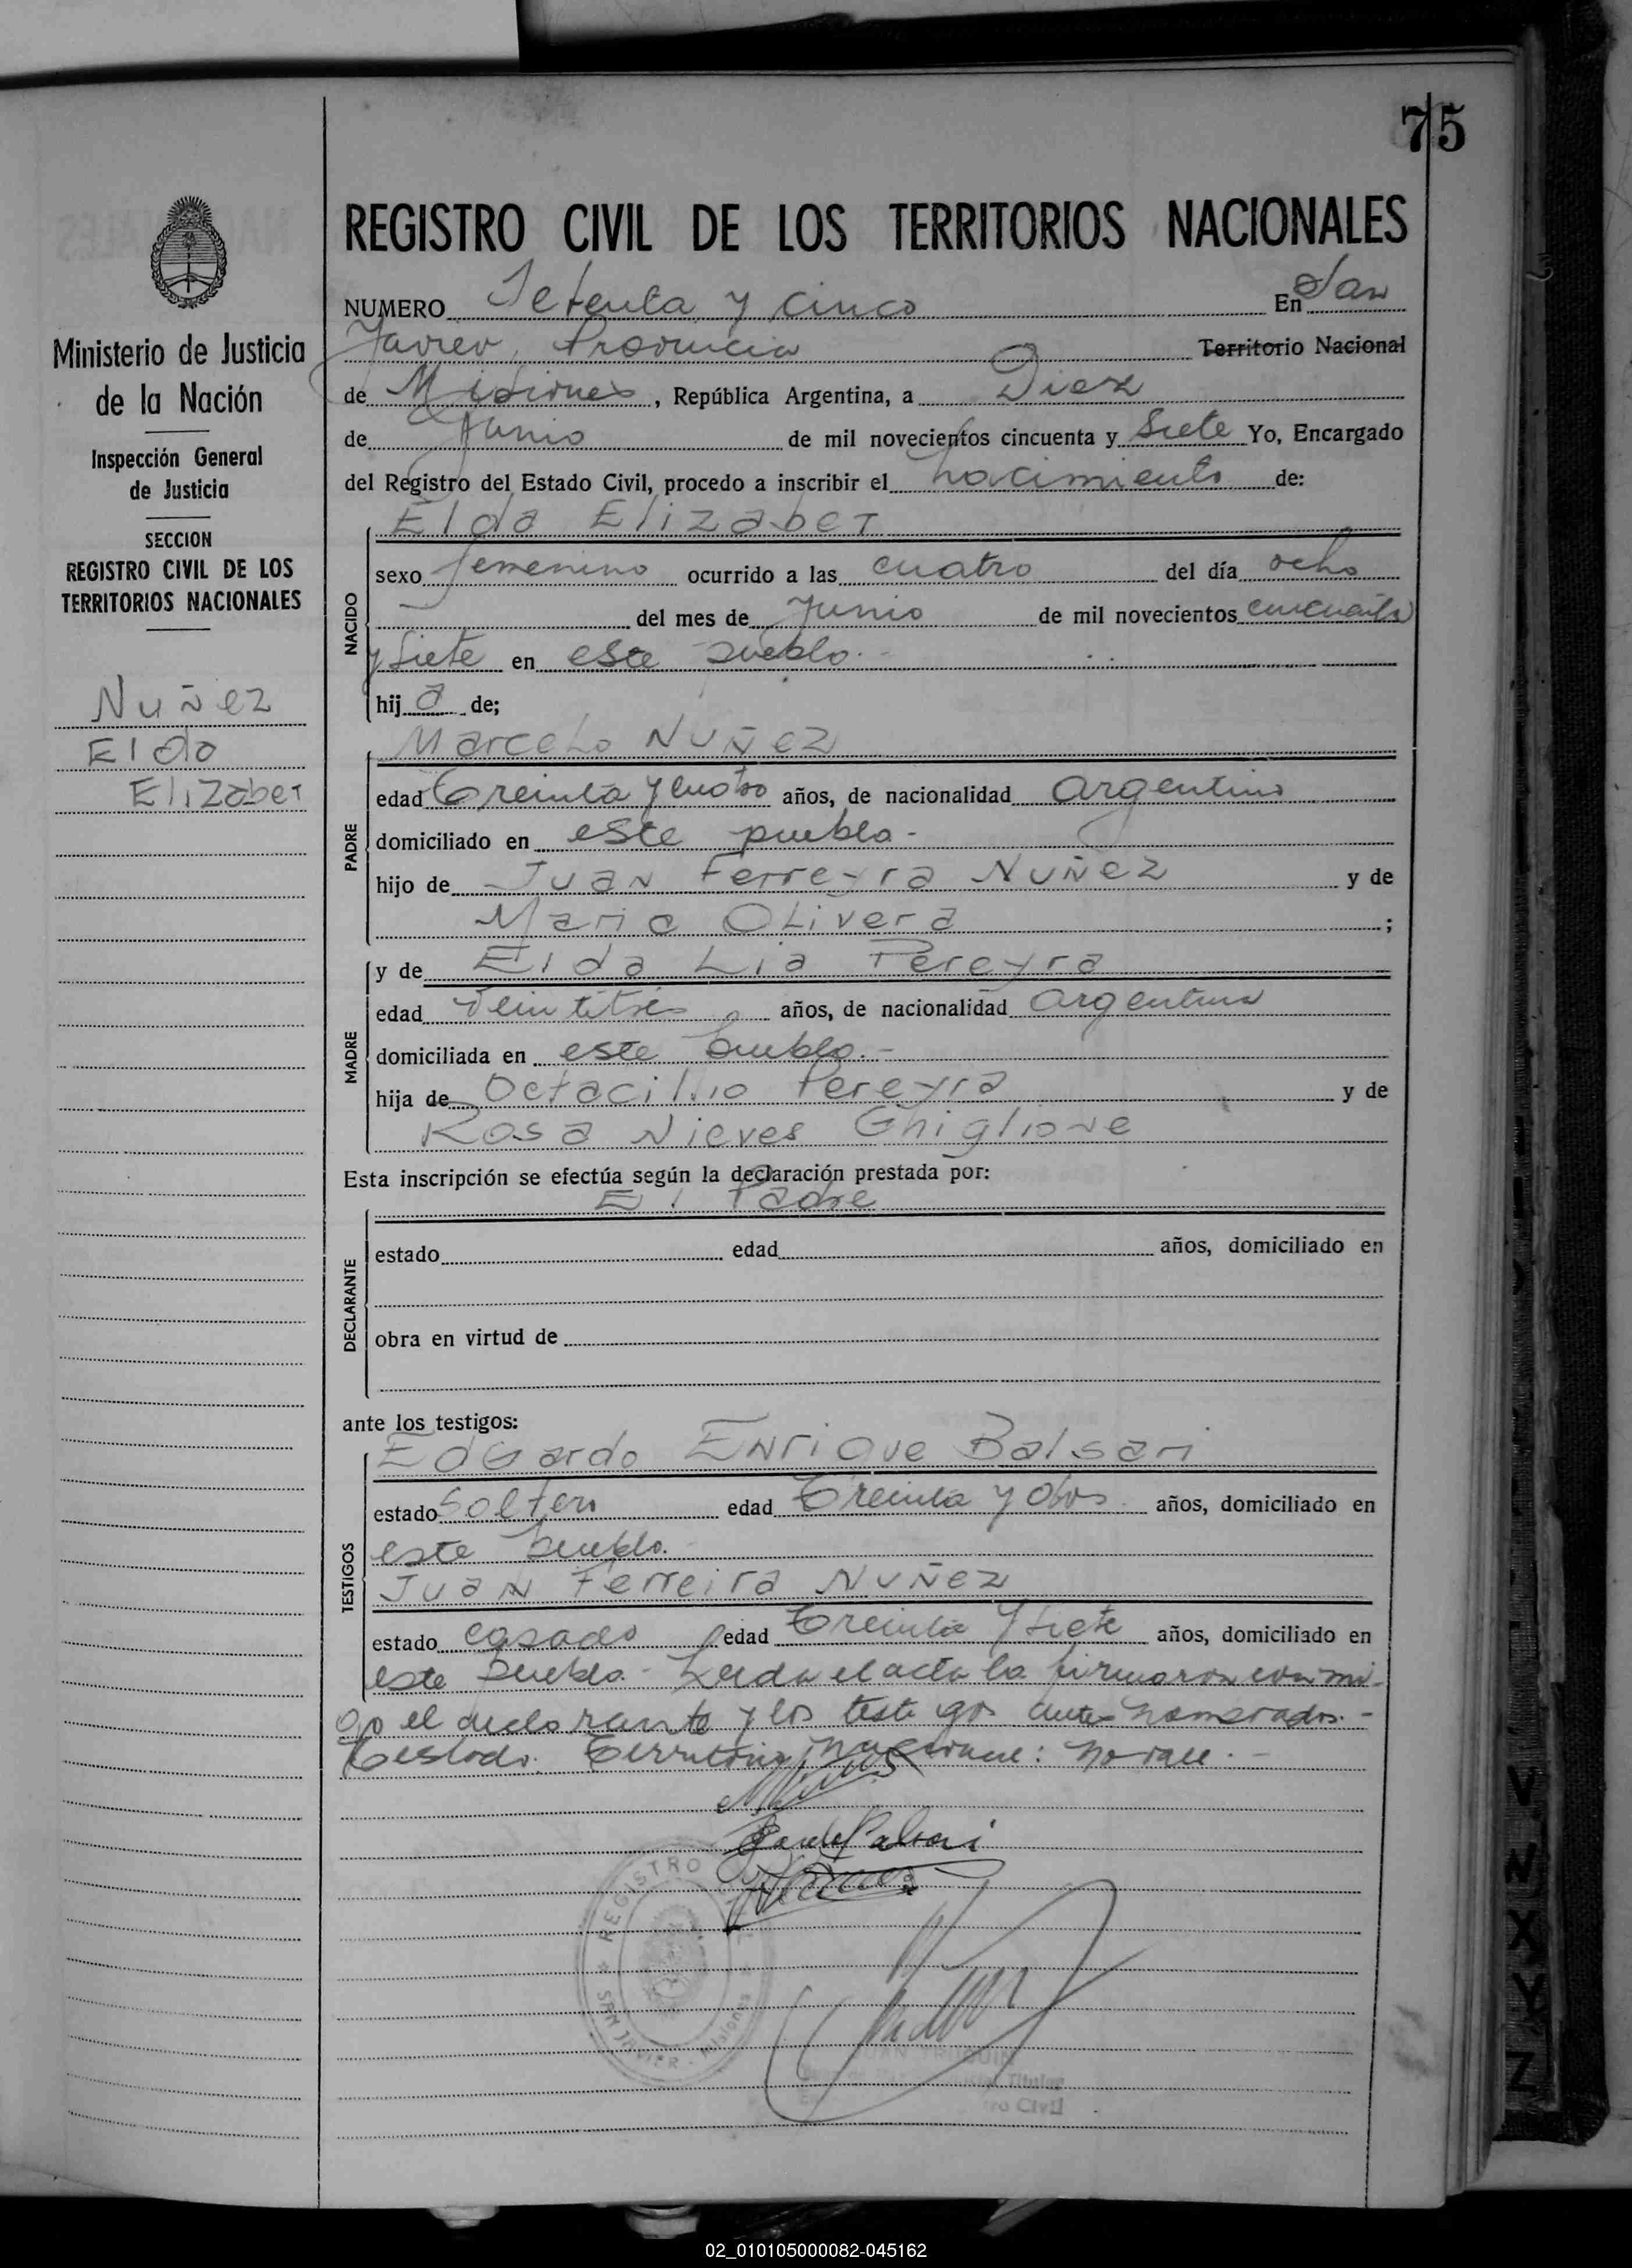 75
REGISTRO CIVIL DE LOS TERRITORIOS NACIONALES
NUMERO Setenta y cinco En San
Javier, Provincia Territorio Nacional
de Misiones, República Argentina, a Diez
de Junio de mil novecientos cincuenta y Siete Yo, Encargado
del Registro del Estado Civil, procedo a inscribir el nacimiento de:
Ministerio de Justicia
de la Nación
Inspección General
de Justicia
SECCION
REGISTRO CIVIL DE LOS
TERRITORIOS NACIONALES
Nuñez
Elda
Elizabet
NACIDO
Elda Elizabet
sexo femenino ocurrido a las cuatro del día ocho
del mes de Junio de mil novecientos cincuenta
y Siete en este pueblo.-
hij a de;
PADRE
Marcelo Nuñez
edad Treinta y cuatro años, de nacionalidad argentino
domiciliado en este pueblo-
hijo de Juan Ferreyra Nuñez y de
Maria Olivera ;
MADRE
y de Elda Lia Pereyra
edad Veintitres años, de nacionalidad argentina
domiciliada en este pueblo.-
hija de Octacilio Pereyra y de
Rosa Nieves Ghiglione
Esta inscripción se efectúa según la declaración prestada por:
DECLARANTE
El Padre
estado edad años, domiciliado en
obra en virtud de
ante los testigos:
TESTIGOS
Edgardo Enrique Balsari
estado Soltero edad Treinta y dos años, domiciliado en
este pueblo.
Juan Ferreira Nuñez
estado casado edad Treinta y siete años, domiciliado en
este pueblo- Leida el acta la firmaron conmi-
go el declarante y los testigos antes nombrados.-
Testado: Territorio nacional: no vale.-
REGISTRO
SAN JAVIER - Misiones
Titular
ro Civil
V
N
X
Y
Z
02_010105000082-045162